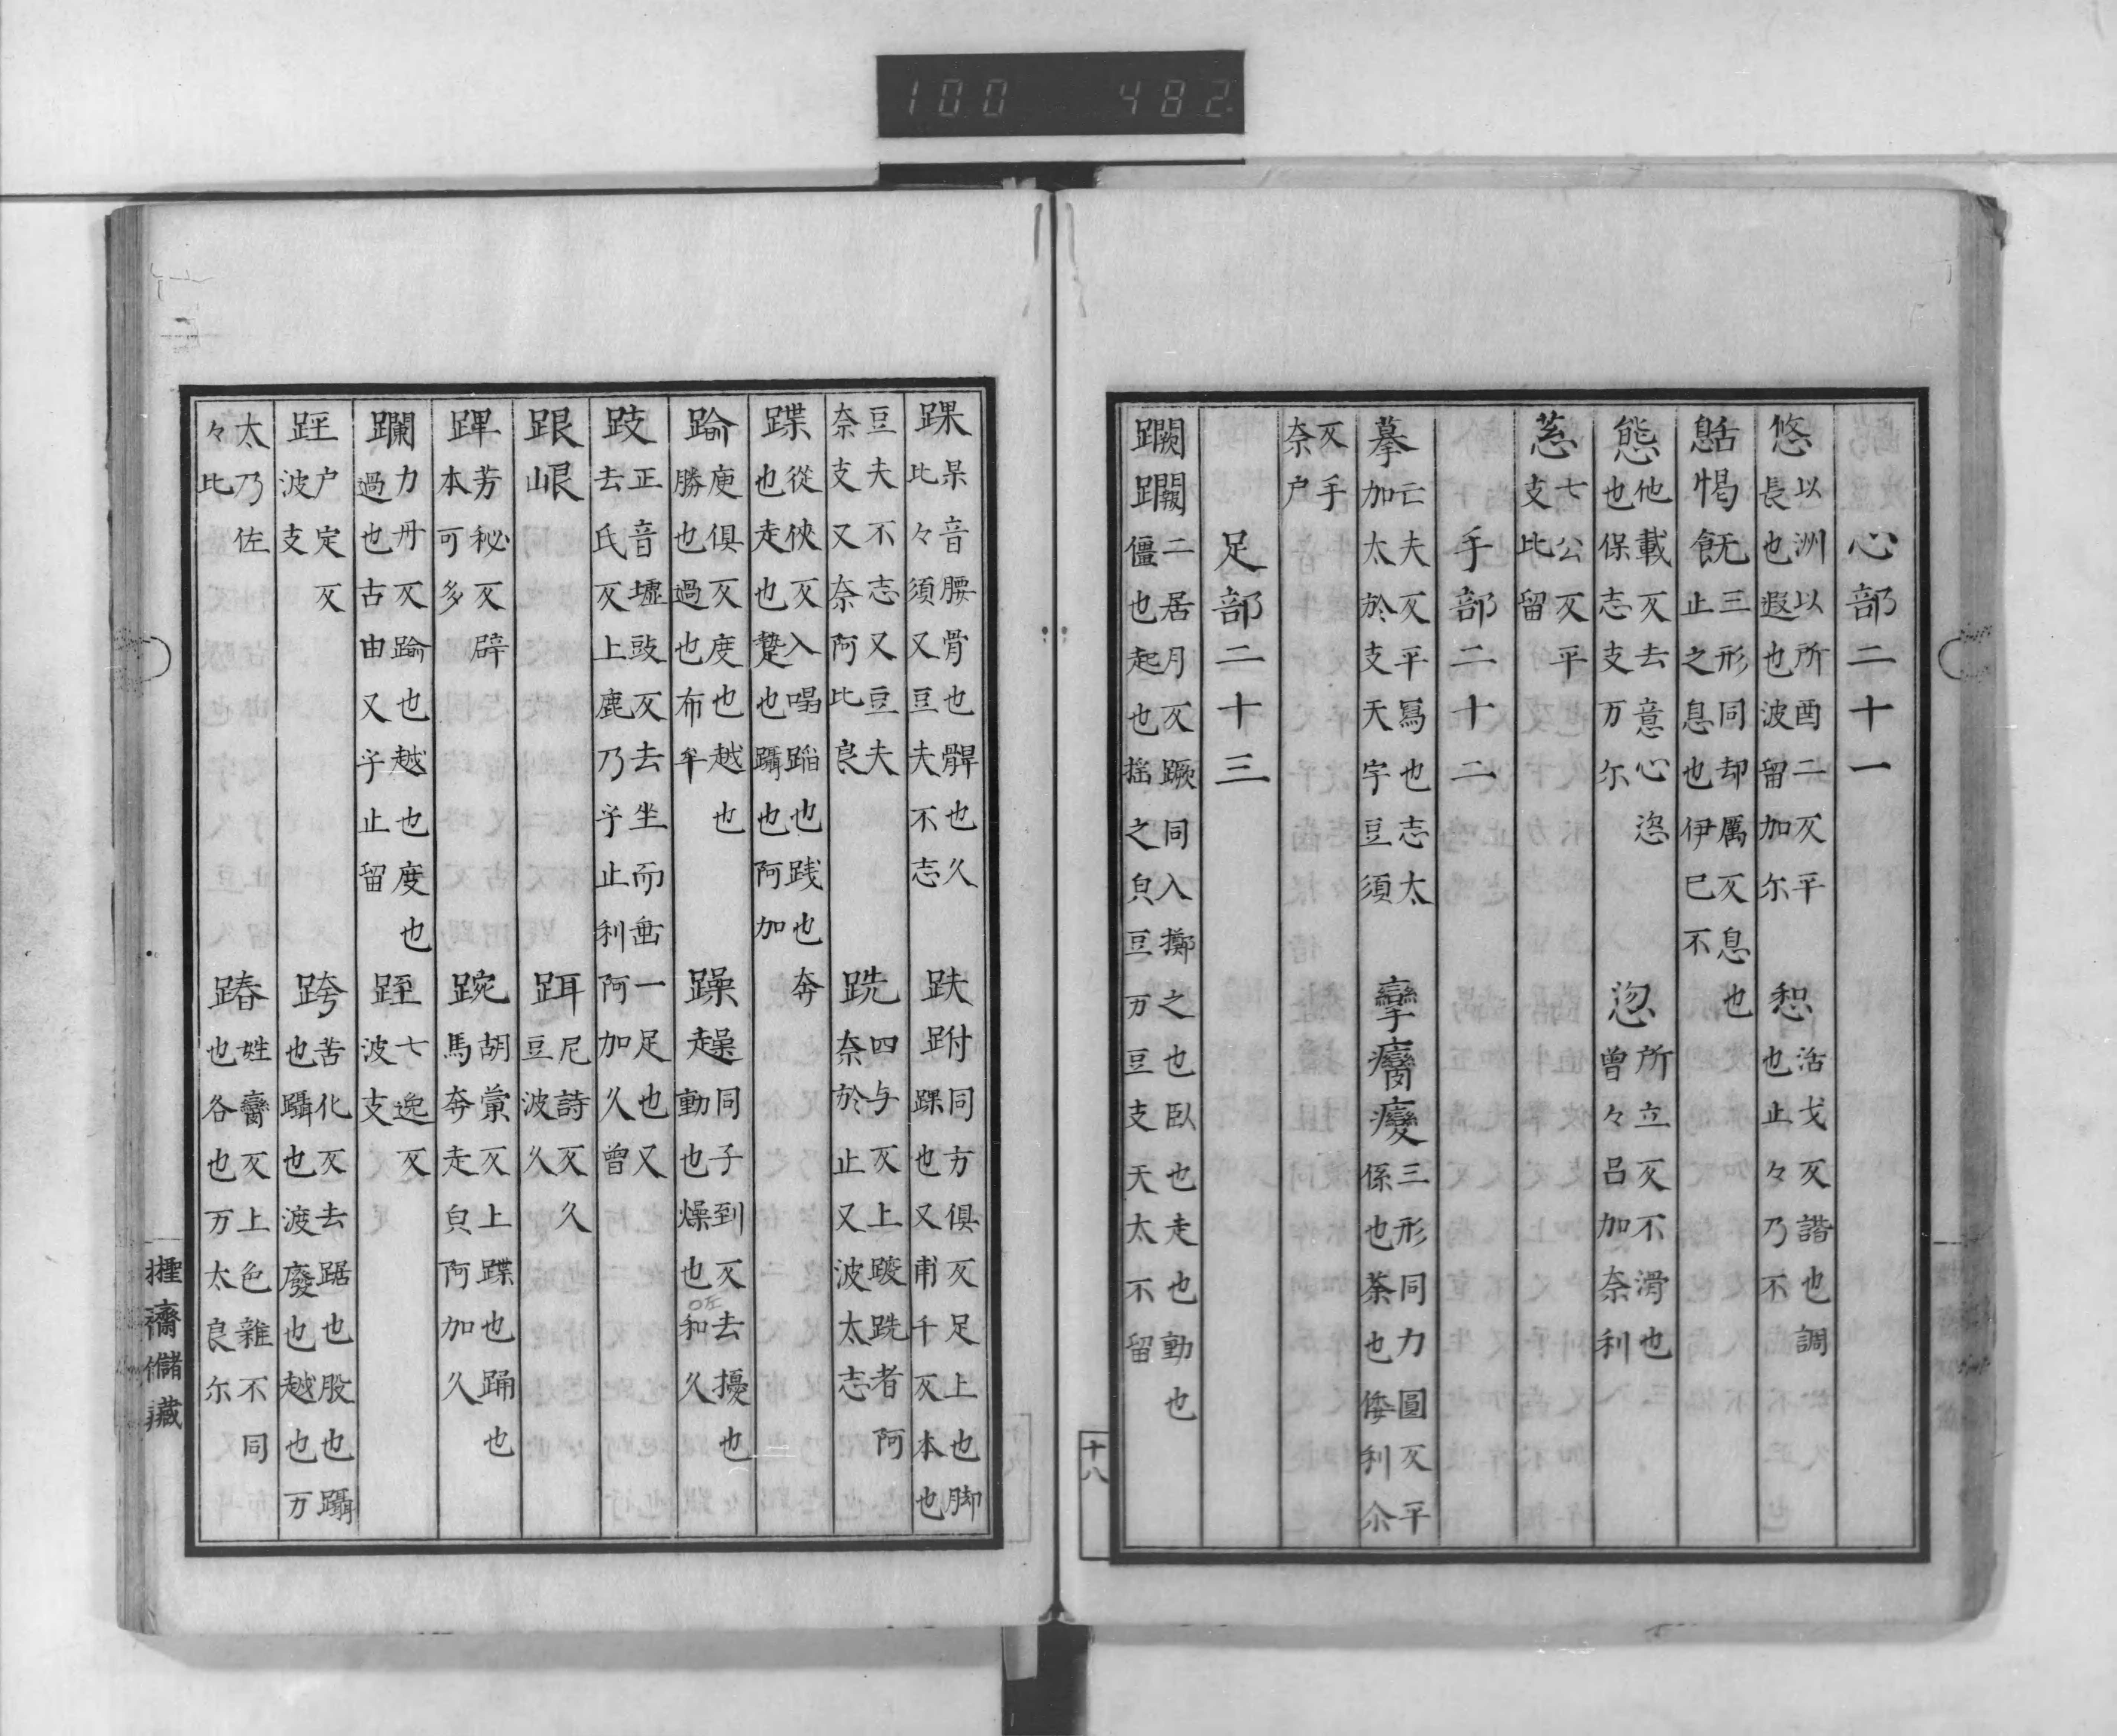 100 482
心部二十一
悠 以洲以所酉二反平
長也遐也波留加尓
恕 活戈反諧也調
也止々乃不
三形同却厲反息也
止之息也伊巳不
態 他載反去意心恣
也保志支万尓
所立反不滑也
曽々呂加奈利
七公反平
支比留
手部二十二
摹 亡夫反平寫也志太
加太於支天宇豆須
攣 三形同力圓反平
係也茶也倭利尒
反手
奈户
足部二十三
二居月反蹶同入擲之也臥也走也動也
僵也起也揺之負豆万豆支天太不留
十八
踝 杲音腰骨也髀也久
比々須又豆夫不志
趺 跗 同方俱反足上也脚
踝也又甫千反本也
豆夫不志又豆夫
奈支又奈阿比良
跣 四与反上跛跣者阿
奈於止又波太志
蹀 從俠反入唱蹈也践也
也走也蹵也躡也阿加
奔
踰 庾俱反度也越也
勝也過也布牟
躁 趮 同子到反去擾也
動也燥也和久
跂 正音墟豉反去坐而垂一足也又
去氏反上鹿乃乎止利阿加久曽
跟 䟘
尼詩反久
豆波久
芳秘反辟
本可多
踠 胡黨反上蹀也踊也
馬奔走負阿加久
躝 力丹反踰也越也度也
過也古由又乎止留
七逸反
波支
户定反
波支
跨 苦化反去踞也股也躡
也躡也渡廢也越也万
太乃佐
々比
踳 姓臠反上色雜不同
也各也万太良尓
𢮦齋儲藏